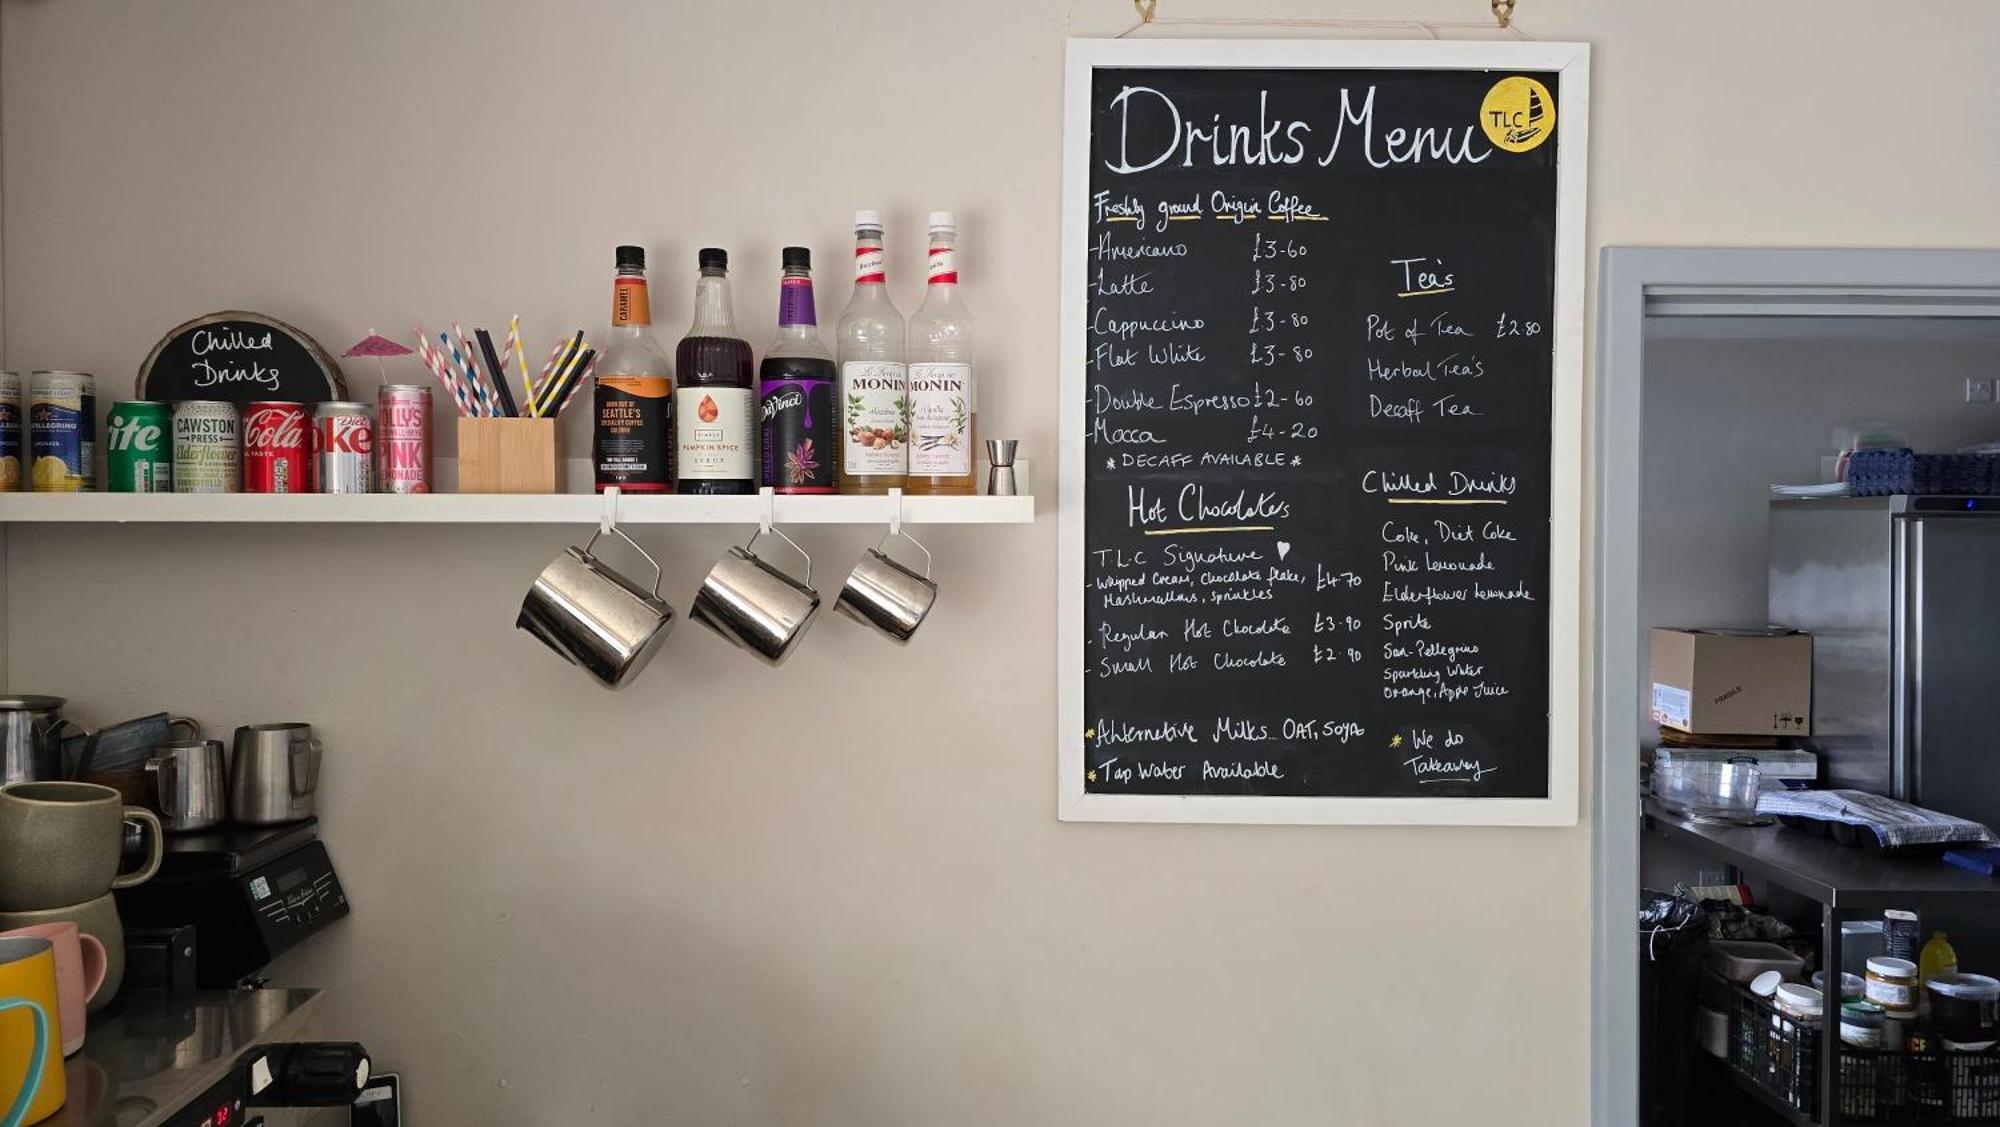 Drinks Menu
TLC
Freshly ground Origin Coffee
-Americano £3-60
-Latte £3-80
-Cappuccino £3-80
-Flat White £3-80
-Double Espresso £2-60
-Mocca £4-20
* DECAFF AVAILABLE *
Hot Chocolates
T.L.C Signature
- Whipped Cream, Chocolate flake, £4-70
Marshmallows, sprinkles
- Regular Hot Chocolate £3.90
- Small Hot Chocolate £2.90
* Alternative Milks - OAT, SOYA
* Tap Water Available
Tea's
Pot of Tea £2.80
Herbal Tea's
Decaff Tea
Chilled Drinks
Coke, Diet Coke
Pink Lemonade
Elderflower Lemonade
Sprite
San-Pellegrino
Sparkling Water
Orange, Apple Juice
* We do
Takeaway
Chilled
Drinks
PELLEGRINO
ite
CAWSTON
PRESS
Elderflower
LEMONADE
Coca
Cola
TASTE
Diet
oke
OLLY'S
PINK
LEMONADE
CARAMEL
BORN OUT OF
SEATTLE'S
SPECIALITY COFFEE
CULTURE
SIMPLY
PUMPKIN SPICE
SYRUP
DaVinci
MONIN
MONIN
Vanilla
FRAGILE